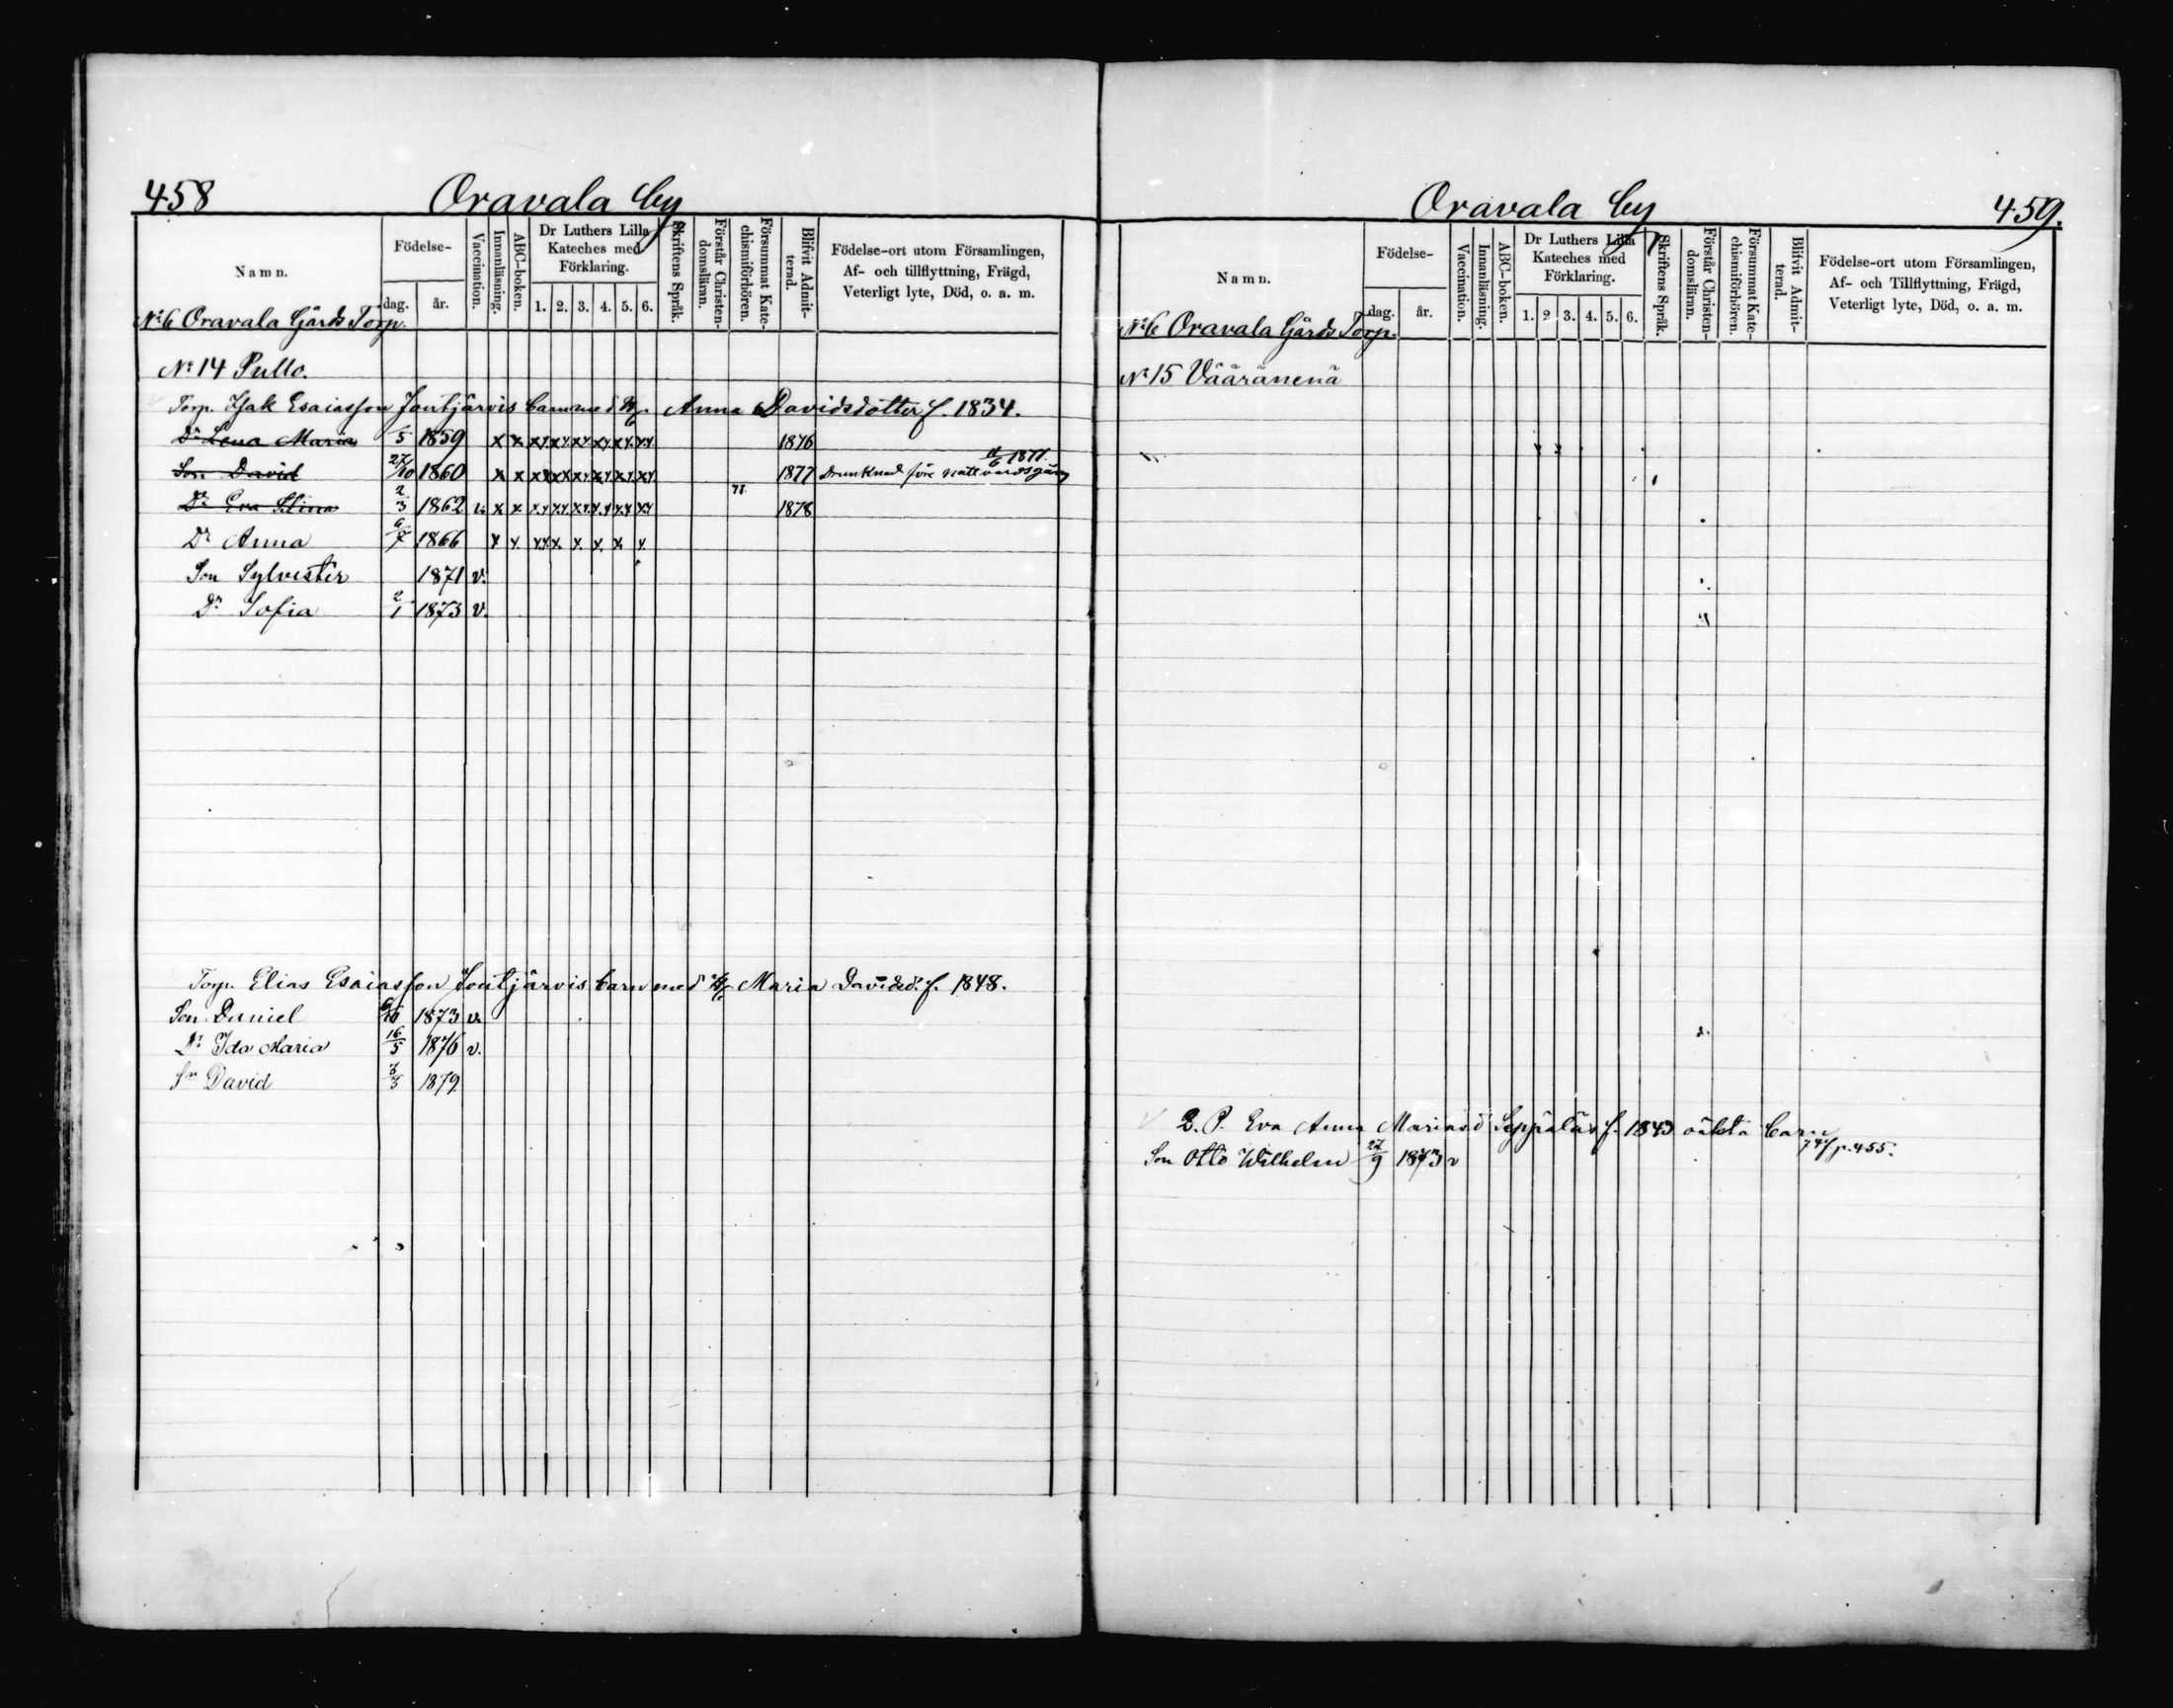 458 Oravala by
Namn. Födelse- dag. år. Vaccination. Innanläsning. ABC-boken. Dr Luthers Lilla Kateches med Förklaring. 1. 2. 3. 4. 5. 6. Skriftens Språk. Förstår Christen-domsläran. Försummat Kate-chismiförhören. Blifvit Admit-terad. Födelse-ort utom Församlingen, Af- och tillflyttning, Frägd, Veterligt lyte, Död, o. a. m.
No 6 Oravala Gårds Torp.
No 14 Pullo.
Torp. Isak Esaiasson Joutjärvis barn med Anna Davidsdotter f. 1834.
Dr Lena Maria 5 1859 x x 1876
11/6 1877.
Son David 27/10 1860 x x 1877 Drunknad före nattvardsgång
77
Dr Eva Stina 2/3 1862 v. x x 1878
Dr Anna 6/7 1866 x x
Son Sylvester 1871 v.
Dr Sofia 2/1 1873 v.
Torp. Elias Esaiasson Joutjärvis barn med Maria Davidsd. f. 1848.
Son Daniel 1873 v.
Dr Ida Maria 16/5 1876 v.
Sn David 3/3 1879
Oravala by 459.
Namn. Födelse- dag. år. Vaccination. Innanläsning. ABC-boken. Dr Luthers Lilla Kateches med Förklaring. 1. 2. 3. 4. 5. 6. Skriftens Språk. Förstår Christen-domsläran. Försummat Kate-chismiförhören. Blifvit Admit-terad. Födelse-ort utom Församlingen, Af- och Tillflyttning, Frägd, Veterligt lyte, Död, o. a. m.
No 6 Oravala Gårds Torp.
No 15 Vääränenä
Q. P. Eva Anna Mariasd Seppäläs f. 1843 oäkta barn
Son Otto Wilhelm 27/9 1873 v p. 455.